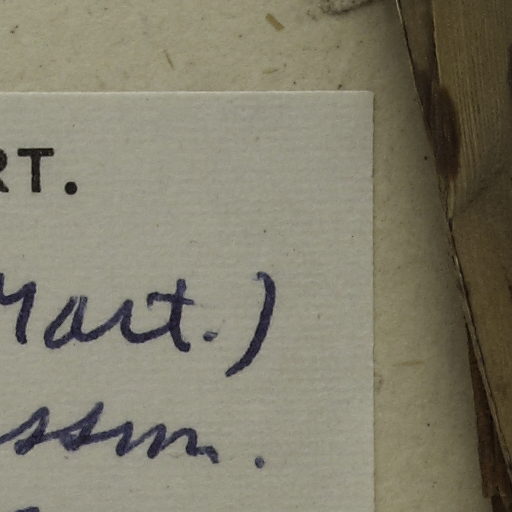 RT.
Mart.)
ssm.